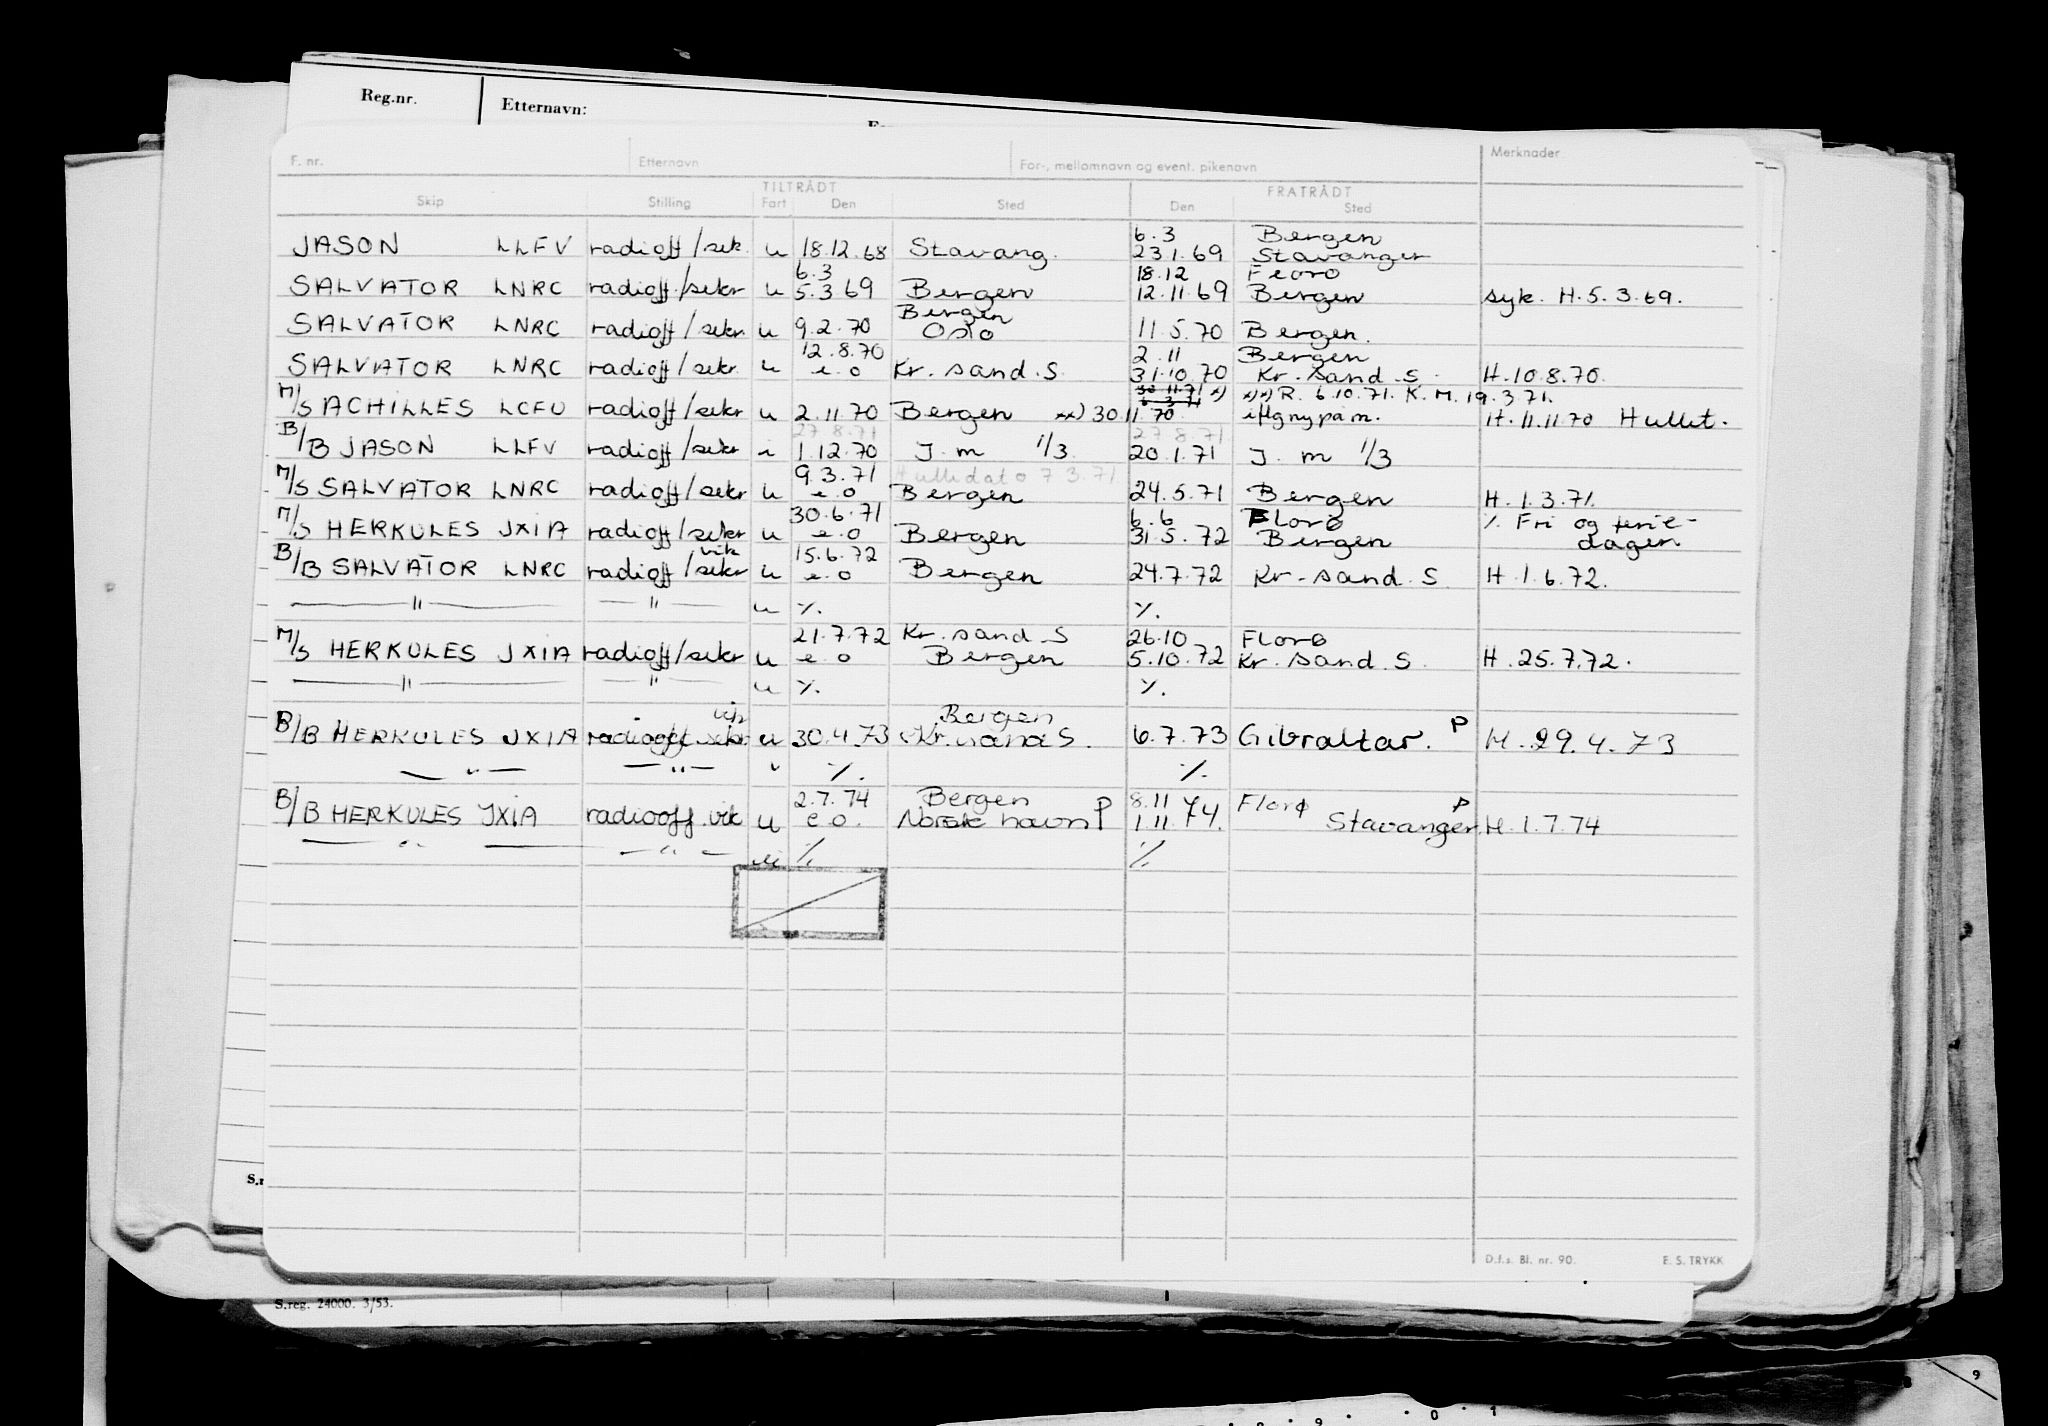 Reg.nr. Etternavn:
F. nr. Etternavn For-, mellomnavn og event. pikenavn Merknader
TILTRÅDT FRATRÅDT
Skip Stilling Fart Den Sted Den Sted
6.3 Bergen
JASON LLFV radioff/sek. u 18.12.68 Stavang. 23.1.69 Stavanger
6.3 18.12 Florø
SALVATOR LNRC radioff/sekr u 5.3 69 Bergen 12.11.69 Bergen syk. H.5.3.69.
Bergen
SALVATOR LNRC radioff/sekr u 9.2.70 Oslo 11.5.70 Bergen.
12.8.70 2.11 Bergen
SALVATOR LNRC radioff/sekr u e.o Kr.sand.S 31.10.70 Kr.sand.S. H.10.8.70.
30.11.71 x) x)x) R. 6.10.71. K.M. 19.3.71.
M/S ACHILLES LCFU radioff/sekr u 2.11.70 Bergen xx) 30.11.70. iflg nypåm. H.11.11.70 Hullet.
27.8.71 27.8.71
B/B JASON LLFV radioff/sekr i 1.12.70 J.m 1/3 20.1.71 J.m 1/3
9.3.71 Hulledato 7.3.71
M/S SALVATOR LNRC radioff/sekr u e.o Bergen 24.5.71 Bergen H.1.3.71.
30.6.71 6.6 Florø ٪ Fri og ferie-
M/S HERKULES JXIA radioff/sekr u e.o Bergen 31.5.72 Bergen dagen
vik 15.6.72
B/B SALVATOR LNRC radioff/sekr u e.o Bergen 24.7.72 Kr-sand.S H.1.6.72.
— " — — " — u ٪. ٪.
21.7.72 Kr.sand S 26.10 Florø
M/S HERKULES JXIA radioff/sekr u e.o Bergen 5.10.72 Kr.sand.S. H.25.7.72.
— " — — " — u ٪. ٪.
vik Bergen
B/B HERKULES JXIA radiooff.sekr. u 30.4.73 Kr.sand S. 6.7.73 Gibraltar. P H.29.4.73
— " — — " — " ٪. ٪.
2.7.74 Bergen 8.11 Florø P
B/B HERKULES JXIA radiooff.vik u e.o. Norsk havn P 1.11.74. Stavanger H.1.7.74
— " — — " — ٪ ٪.
D.f.s. Bl. nr. 90. E. S. TRYKK
S.reg. 24000. 3/53.
9